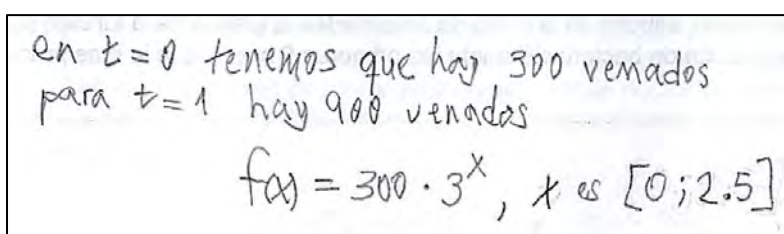 en t=0 tenemos que hay 300 venados
para t=1 hay 900 venados
f(x) = 300 · 3^x, x es [0;2.5]